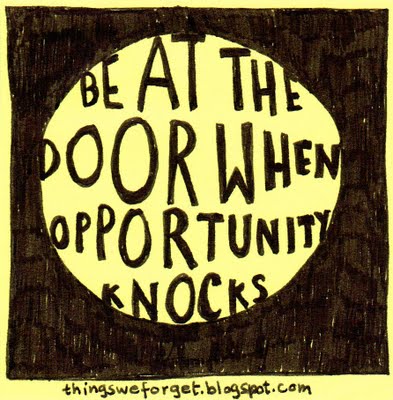 BE AT THE
DOOR WHEN
OPPORTUNITY
KNOCKS
thingsweforget.blogspot.com